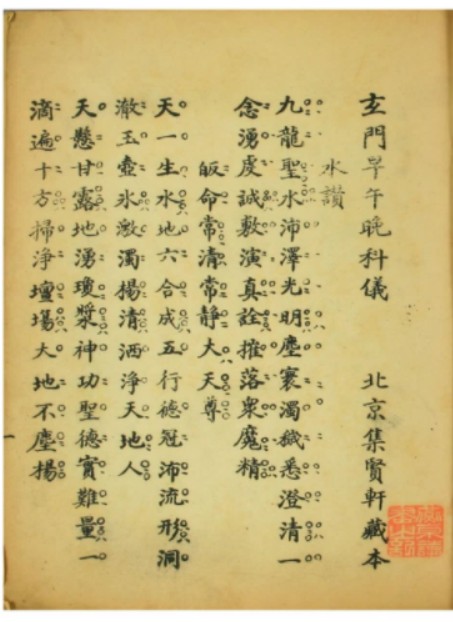 玄門早午晚科儀 北京集賢軒藏本
水讚
九龍聖水沛澤光明塵寰濁穢悉澄清一
念湧虔誠敷演真詮摧落衆魔精
皈命常清常静大天尊
天一生水地六合成五行德冠沛流形洞
澈玉壺氷激濁揚清洒淨天地人
天懸甘露地湧瓊漿神功聖德實難量一
滴遍十方掃淨壇場大地不塵揚